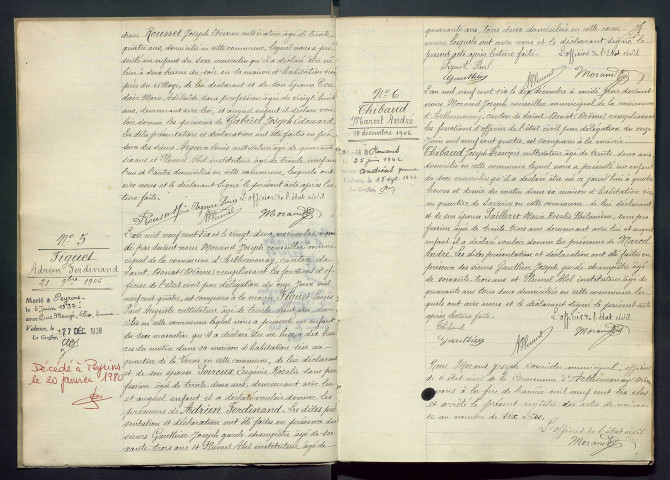 sieur Rousset Joseph Etienne cultivateur âgé de trente
quatre ans, domicilié en cette commune, lequel nous a pré
senté un enfant du sexe masculin qu'il a déclaré être né
hier à deux heures du soir en la maison d'habitation sise
près du village de lui déclarant et de son épouse
Marie Adélaïde sans profession âgée de vingt huit
ans, demeurant avec lui, et auquel enfant il déclare vou
loir donner les prénoms de Gabriel Joseph Edouard.
Les dites présentation et déclaration ont été faites en pré
sence des sieurs Louis cultivateur âgé de quarante
ans et Plumel Abel instituteur âgé de trente
l'un et l'autre domiciliés en cette commune, lesquels ont
avec nous et le déclarant signé le présent acte après lec
ture faite. L'officier de l'état civil
Plumel Morand
No 5
Figuet
Adrien Ferdinand
21 9bre 1906
Marié à Peyrins
le
avec
Valence, le 27 DEC 1938
Le Greffier
Décédé à Peyrins
le 20 janvier 1980
L'an mil neuf cent six et le vingt deux novembre à
par devant nous Morand Joseph conseiller muni
cipal de la commune d'Arthemonay, canton de
Saint Donat (Drôme) remplissant les fonctions d'of
ficier de l'état civil par délégation du onze Juin mil
neuf cent quatre, est comparu à la mairie Figuet
Auguste cultivateur âgé de trente ans, domi
cilié en cette commune lequel nous a présenté un enfant
du sexe masculin qu'il a déclaré être né hier à
res du matin dans sa maison d'habitation sise au
quartier de la Verne en cette commune, de lui déclarant
et de son épouse Eugénie Rosalie sans pro
fession âgée de trente deux ans, demeurant avec lui
et auquel enfant il a déclaré vouloir donner les
prénoms de Adrien Ferdinand. Les dites pré
sentation et déclaration ont été faites en présence des
sieurs Gauthier Joseph garde champêtre âgé de soi
xante trois ans et Plumel Abel instituteur âgé de
quarante ans, tous deux domiciliés en cette com
mune lesquels ont avec nous et le déclarant signé le
présent acte après lecture faite. L'officier de l'état civil
Figuet
Gauthier Plumel Morand
No 6
Thibaud
Marcel André
10 décembre 1906
Romans
25 juin 1942
Valence, le 1942
Le Greffier
L'an mil neuf cent six le dix décembre à midi par devant
nous Morand Joseph, conseiller municipal de la commune
d'Arthemonay, canton de Saint Donat (Drôme) remplissant
les fonctions d'officier de l'état civil par délégation du onze
Juin mil neuf cent quatre, est comparu à la mairie
Thibaud Joseph François cultivateur âgé de trente deux ans
domicilié en cette commune lequel nous a présenté un enfant
du sexe masculin qu'il a déclaré être né à quatre
heures et demie du matin dans sa maison d'habitation sise
au quartier de en cette commune, de lui déclarant
et de son épouse Marie Rosalie Philomène, sans pro
fession âgée de trente trois ans demeurant avec lui et auquel
enfant il a déclaré vouloir donner les prénoms de Marcel
André. Les dites présentation et déclaration ont été faites en
présence des sieurs Gauthier Joseph garde champêtre âgé
de soixante trois ans et Plumel Abel instituteur âgé de
quarante ans tous deux domiciliés en cette commune les
quels ont avec nous et le déclarant signé le présent acte
après lecture faite. L'officier de l'état civil
Thibaud
Gauthier Plumel Morand
Nous Morand Joseph conseiller municipal, officier
de l'état civil de la commune d'Arthemonay
à la fin de l'année mil neuf cent six clos
et arrêté le présent registre des actes de naissan
ce au nombre de six actes.
L'officier de l'état civil
Morand